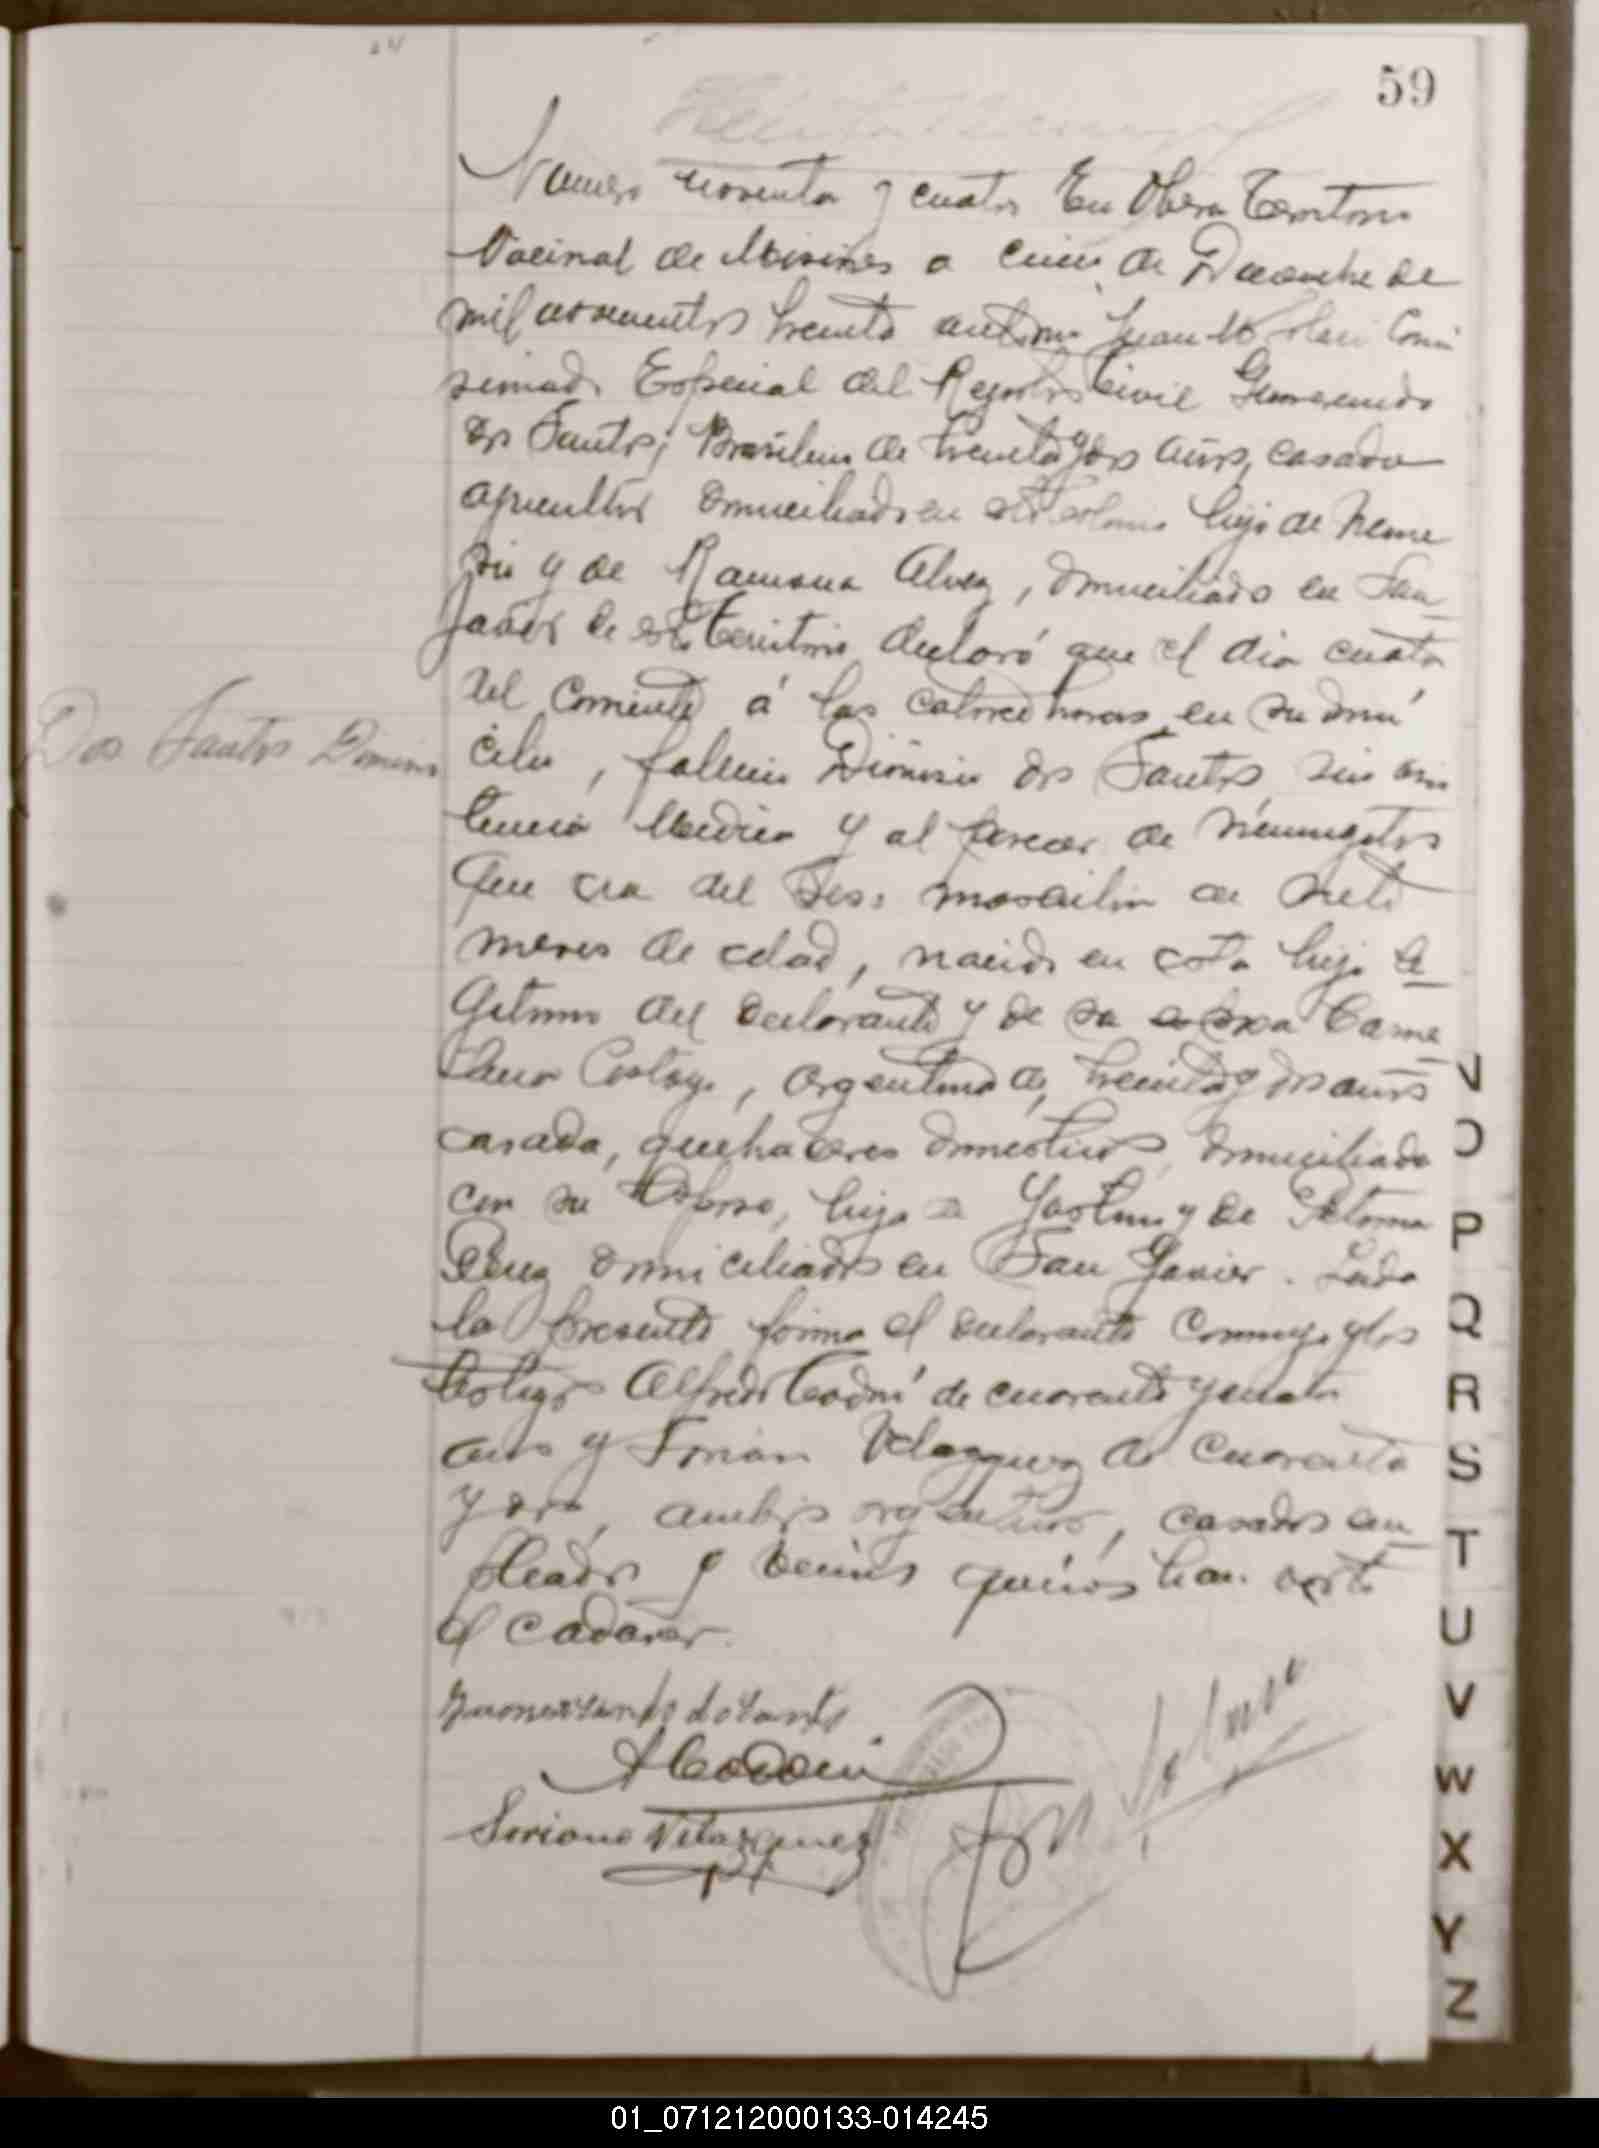 59
Numero noventa y cuatro En Obera Territorio
Nacional de Misiones a cinco de Diciembre de
mil novecientos treinta ante mi Juan M Comi
sionado Especial del Registro Civil Gumercindo
dos Santos, Brasilero de treinta y dos años, casado
agricultor domiciliado en esta colonia hijo de Neme
sio y de Ramona Alvez, domiciliado en San
Javier de este Territorio declaró que el dia cuatro
del corriente á las catorce horas en su domi
Dos Santos Dionisio
cilio, fallecio Dionisio dos Santos sin asis
tencia Medica y al parecer de
que era del Sexo masculino de siete
meses de edad, nacido en esta hijo le
gitimo del declarante y de su esposa
argentina de treinta y dos años
casada, quehaceres domesticos, domiciliada
con su Esposo, hija de y de Petrona
domiciliados en San Javier. Leida
la presente firma el declarante conmigo y los
testigos Alfredo de cuarenta y cuatro
años y Velazquez de cuarenta
y dos, ambos argentinos, casados em
pleados y vecinos quienes han visto
el cadaver.
Gumersindo do Santo
Soriano Velazquez
N
O
P
Q
R
S
T
U
V
W
X
Y
Z
01_071212000133-014245